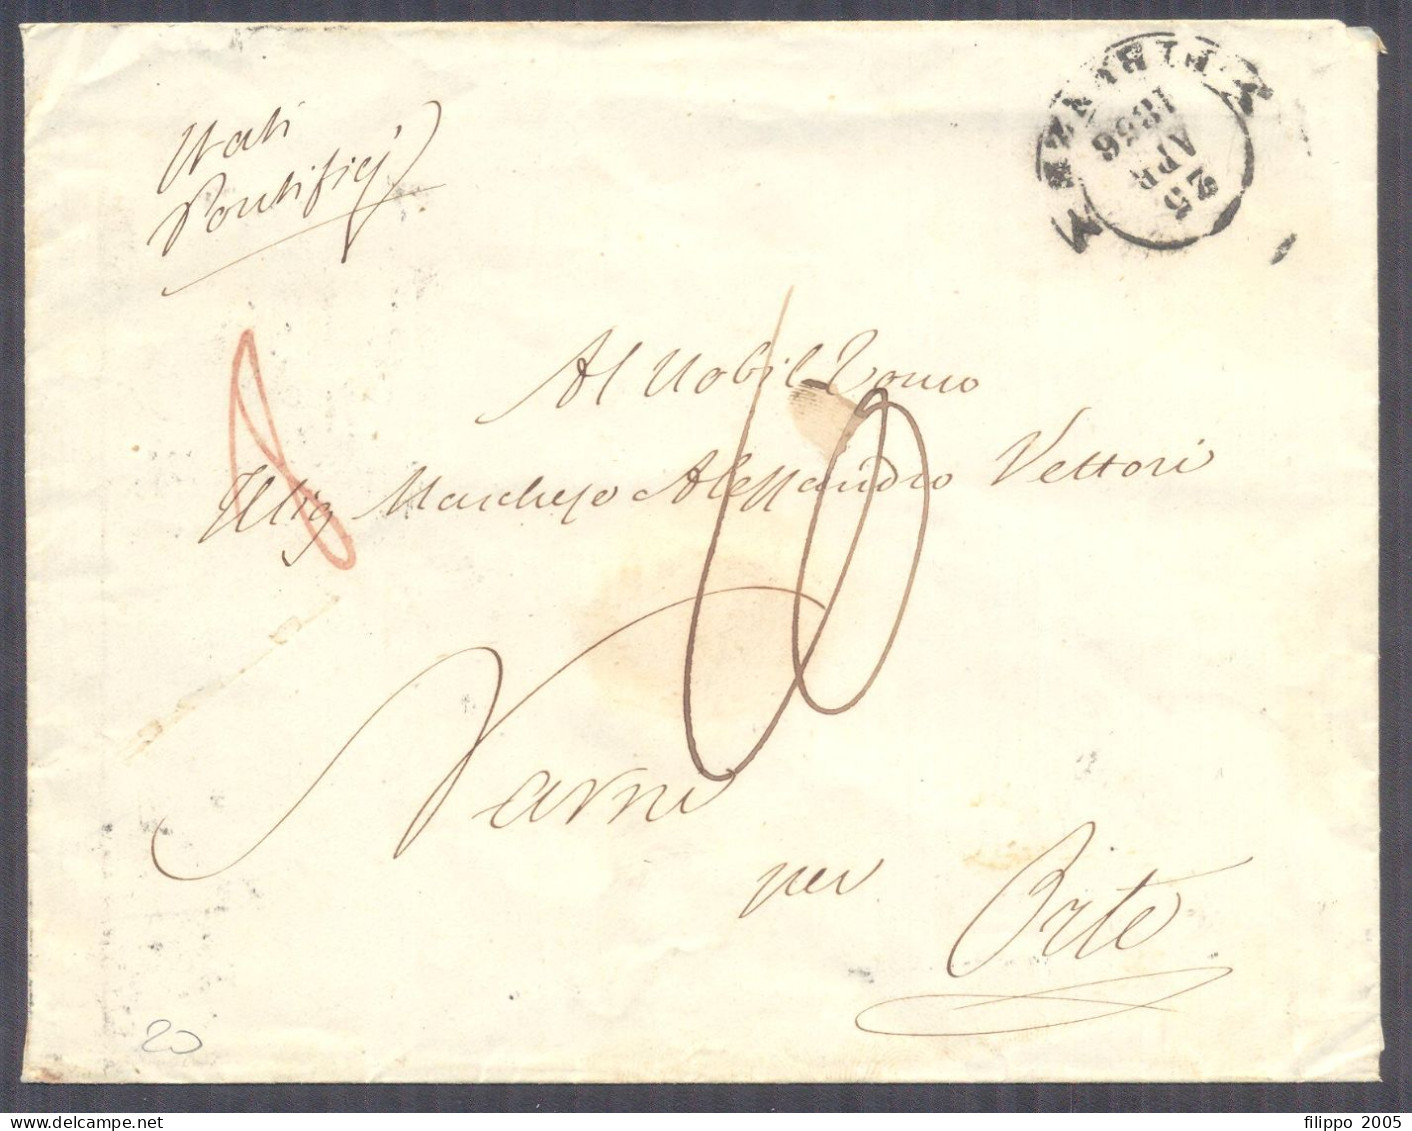 Stati
Pontificj
FIRENZE
25
APR
1856
Al Nobil Uomo
Illig Marchese Alessandro Vettori
10
Narni
per
Orte
20
filippo 2005